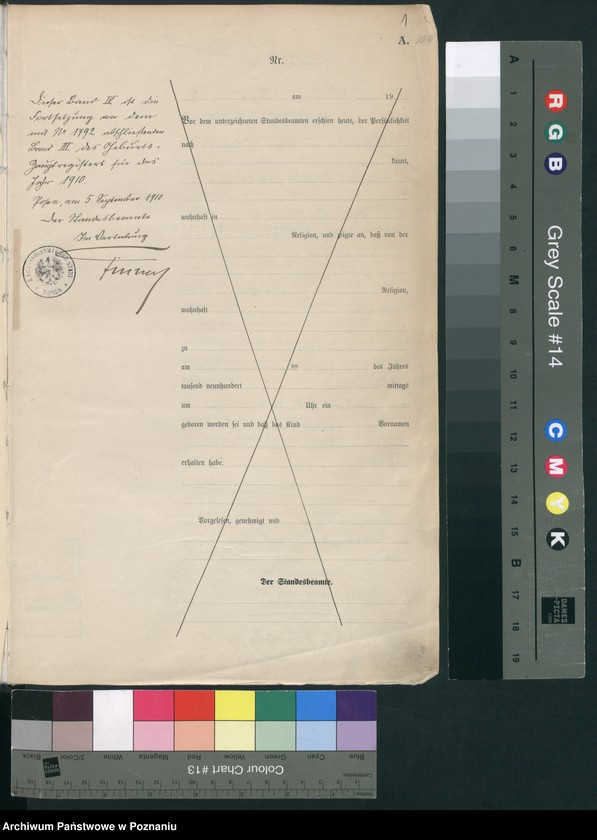 1
A.
Nr.
am 19
Vor dem unterzeichneten Standesbeamten erschien heute, der Persönlichkeit
nach
kannt,
wohnhaft in
Religion, und zeigte an, daß von der
Religion,
wohnhaft
zu
am ten des Jahres
tausend neunhundert mittags
um Uhr ein
geboren worden sei und daß das Kind Vornamen
erhalten habe.
Vorgelesen, genehmigt und
Der Standesbeamte.
Dieser Band IV ist die
Fortsetzung von dem
mit No 1792 abschließenden
Band III des Geburts-
Hauptregisters für das
Jahr 1910.
Posen, am 5. September 1910
Der Standesbeamte
In Vertretung
A 1 2 3 4 5 6 M 8 9 10 11 12 13 14 15 B 17 18 19
R G B
Grey Scale #14
C M Y K
DANES
PICTA
Black 3/Color White Magenta Red Yellow Green Cyan Blue
Colour Chart #13
Archiwum Państwowe w Poznaniu